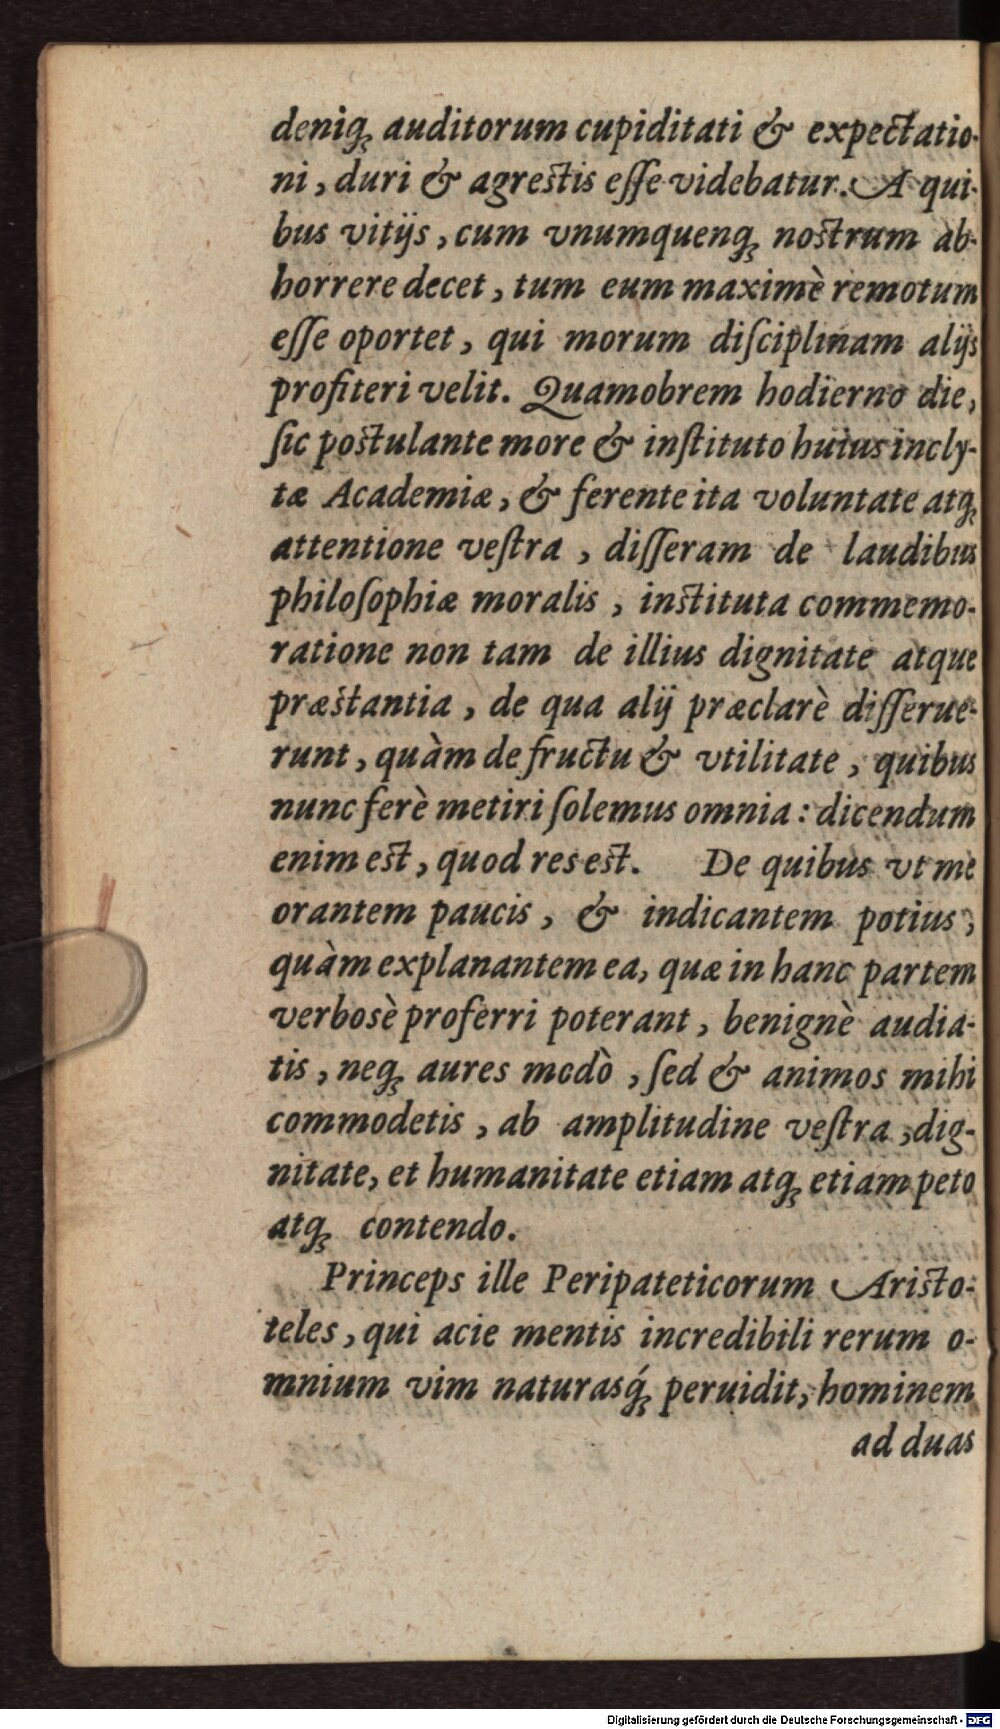 deniq́; auditorum cupiditati & expectatio-
ni, duri & agrestis eſſe videbatur. A qui-
bus vitijs, cum vnumquenq; nostrum ab-
horrere decet, tum eum maximè remotum
eſſe oportet, qui morum diſciplinam alijs
profiteri velit. Quamobrem hodierno die,
ſic postulante more & inſtituto huius incly-
tæ Academiæ, & ferente ita voluntate atq;
attentione veſtra, diſſeram de laudibus
philoſophiæ moralis, instituta commemo-
ratione non tam de illius dignitate atque
præstantia, de qua alij præclarè diſſerue-
runt, quàm de fructu & vtilitate, quibus
nunc ferè metiri ſolemus omnia: dicendum
enim est, quod res est. De quibus vt me
orantem paucis, & indicantem potius,
quàm explanantem ea, quæ in hanc partem
verbosè proferri poterant, benignè audia-
tis, neq; aures modò, ſed & animos mihi
commodetis, ab amplitudine veſtra, dig-
nitate, et humanitate etiam atq; etiam peto
atq; contendo.
Princeps ille Peripateticorum Aristo-
teles, qui acie mentis incredibili rerum o-
mnium vim naturasq́; peruidit, hominem
ad duas
Digitalisierung gefördert durch die Deutsche Forschungsgemeinschaft - DFG